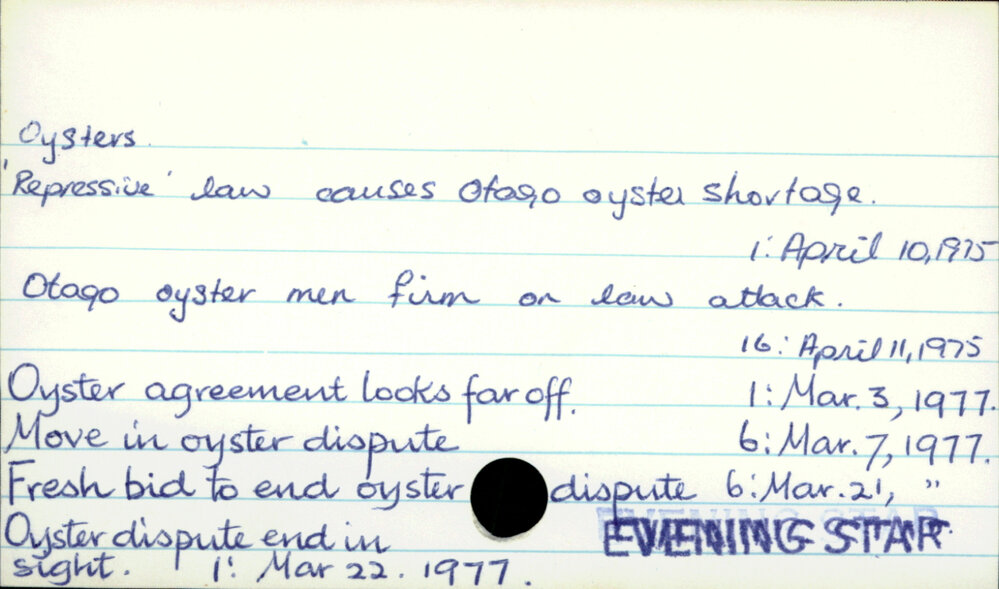 Oysters.
'Repressive' law causes Otago oyster shortage.
1: April 10, 1975
Otago oyster men firm on law attack.
16: April 11, 1975
Oyster agreement looks far off. 1: Mar. 3, 1977.
Move in oyster dispute 6: Mar. 7, 1977.
Fresh bid to end oyster dispute 6: Mar. 21, "
Oyster dispute end in EVENING STAR
sight. 1: Mar 22. 1977.